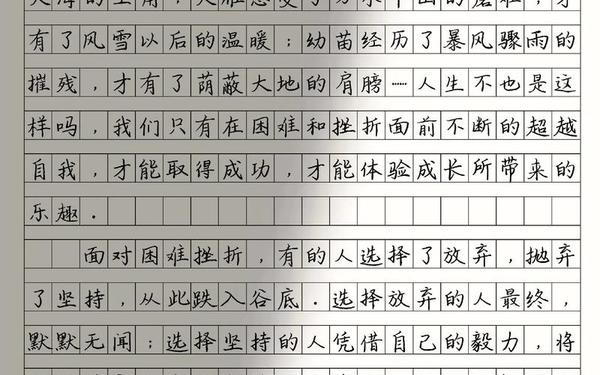 有了风雪以后的温暖；幼苗经历了暴风骤雨的
摧残，才有了荫蔽大地的肩膀……人生不也是这
样吗，我们只有在困难和挫折面前不断的超越
自我，才能取得成功，才能体验成长所带来的
乐趣．
面对困难挫折，有的人选择了放弃，抛弃
了坚持，从此跌入谷底．选择放弃的人最终，
默默无闻；选择坚持的人凭借自己的毅力，将